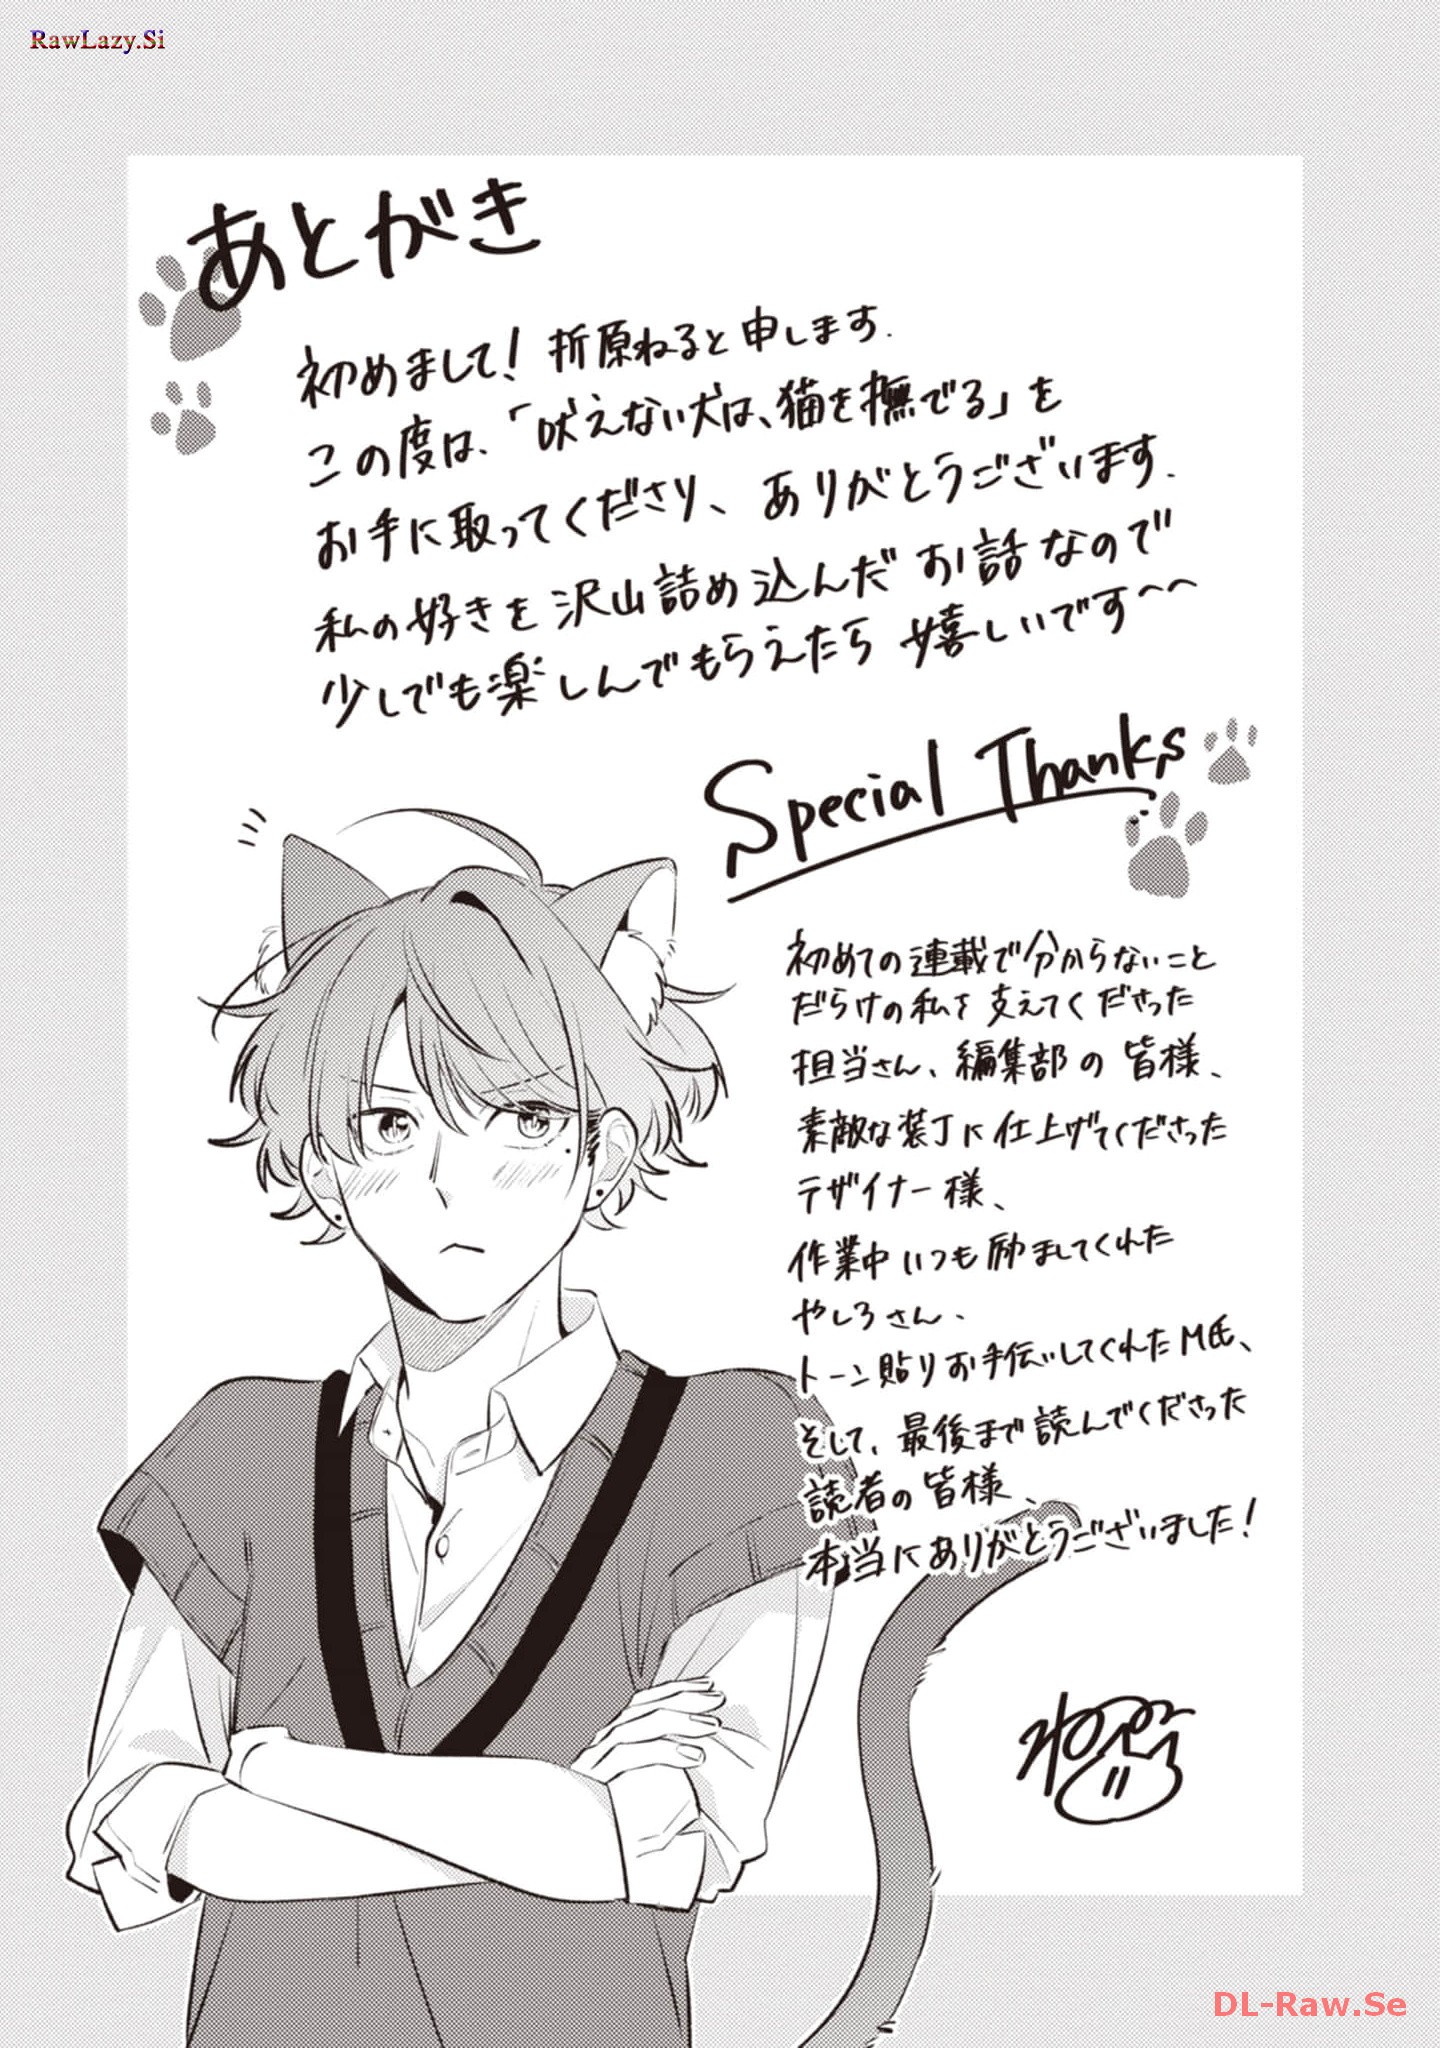 RawLazy.Si
あとがき
初めまして！折原ねると申します.
この度は、「吠えない犬は、猫を撫でる」を
お手に取ってくださり、ありがとうございます.
私の好きを沢山詰め込んだお話なので
少しでも楽しんでもらえたら嬉しいです〜〜
Special Thanks
初めての連載で分からないこと
だらけの私を支えてくださった
担当さん、編集部の皆様、
素敵な装丁に仕上げてくださった
デザイナー様、
作業中いつも励ましてくれた
やしろさん、
トーン貼りお手伝いしてくれたM氏、
そして、最後まで読んでくださった
読者の皆様、
本当にありがとうございました！
DL-Raw.Se